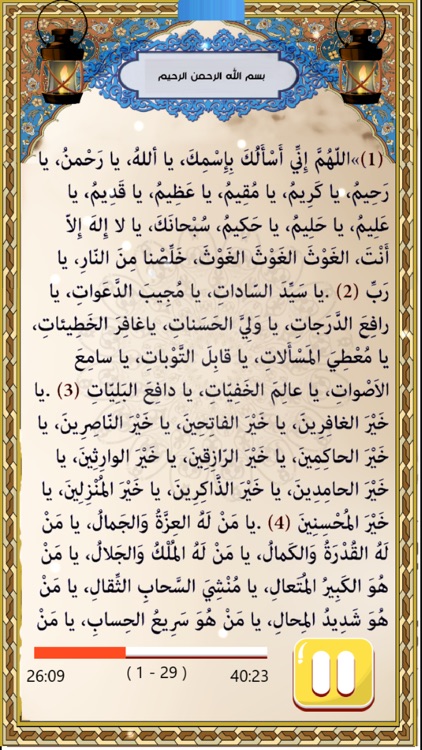 بسم الله الرحمن الرحيم
(1)»اللّهُمَّ إِنِّي أَسْأَلُكَ بِإِسْمِكَ، يا أللهُ، يا رَحْمنُ، يا
رَحِيمُ، يا كَرِيمُ، يا مُقِيمُ، يا عَظِيمُ، يا قَدِيمُ، يا
عَلِيمُ، يا حَلِيمُ، يا حَكِيمُ، سُبْحانَكَ، يا لا إِلهَ إِلاّ
أَنْتَ، الغَوْثَ الغَوْثَ الغَوْثَ، خَلِّصْنا مِنَ النّارِ، يا
رَبِّ (2) .يا سَيِّدَ السّاداتِ، يا مُجِيبَ الدَّعَواتِ، يا
رافِعَ الدَّرجاتِ، يا وَلِيَّ الحَسَناتِ، ياغافِرَ الخَطِيئاتِ،
يا مُعْطِيَ المَسْأَلاتِ، يا قابِلَ التَّوْباتِ، يا سامِعَ
الاَصْواتِ، يا عالِمَ الخَفِيّاتِ، يا دافِعَ البَلِيّاتِ (3) .يا
خَيْرَ الغافِرِينَ، يا خَيْرَ الفاتِحِينَ، يا خَيْرَ النّاصِرِينَ، يا
خَيْرَ الحاكِمِينَ، يا خَيْرَ الرّازِقِينَ، يا خَيْرَ الوارِثِينَ، يا
خَيْرَ الحامِدِينَ، يا خَيْرَ الذّاكِرِينَ، يا خَيْرَ المُنْزِلِينَ، يا
خَيْرَ المُحْسِنِينَ (4) .يا مَنْ لَهُ العِزَّةُ وَالجَمالُ، يا مَنْ
لَهُ القُدْرَةُ وَالكَمالُ، يا مَنْ لَهُ المُلْكُ وَالجَلالُ، يا مَنْ
هُوَ الكَبِيرُ المُتَعالِ، يا مُنْشِيَ السَّحابِ الثِّقالِ، يا مَنْ
هُوَ شَدِيدُ المِحالِ، يا مَنْ هُوَ سَرِيعُ الحِسابِ، يا مَنْ
26:09
( 1 - 29 )
40:23